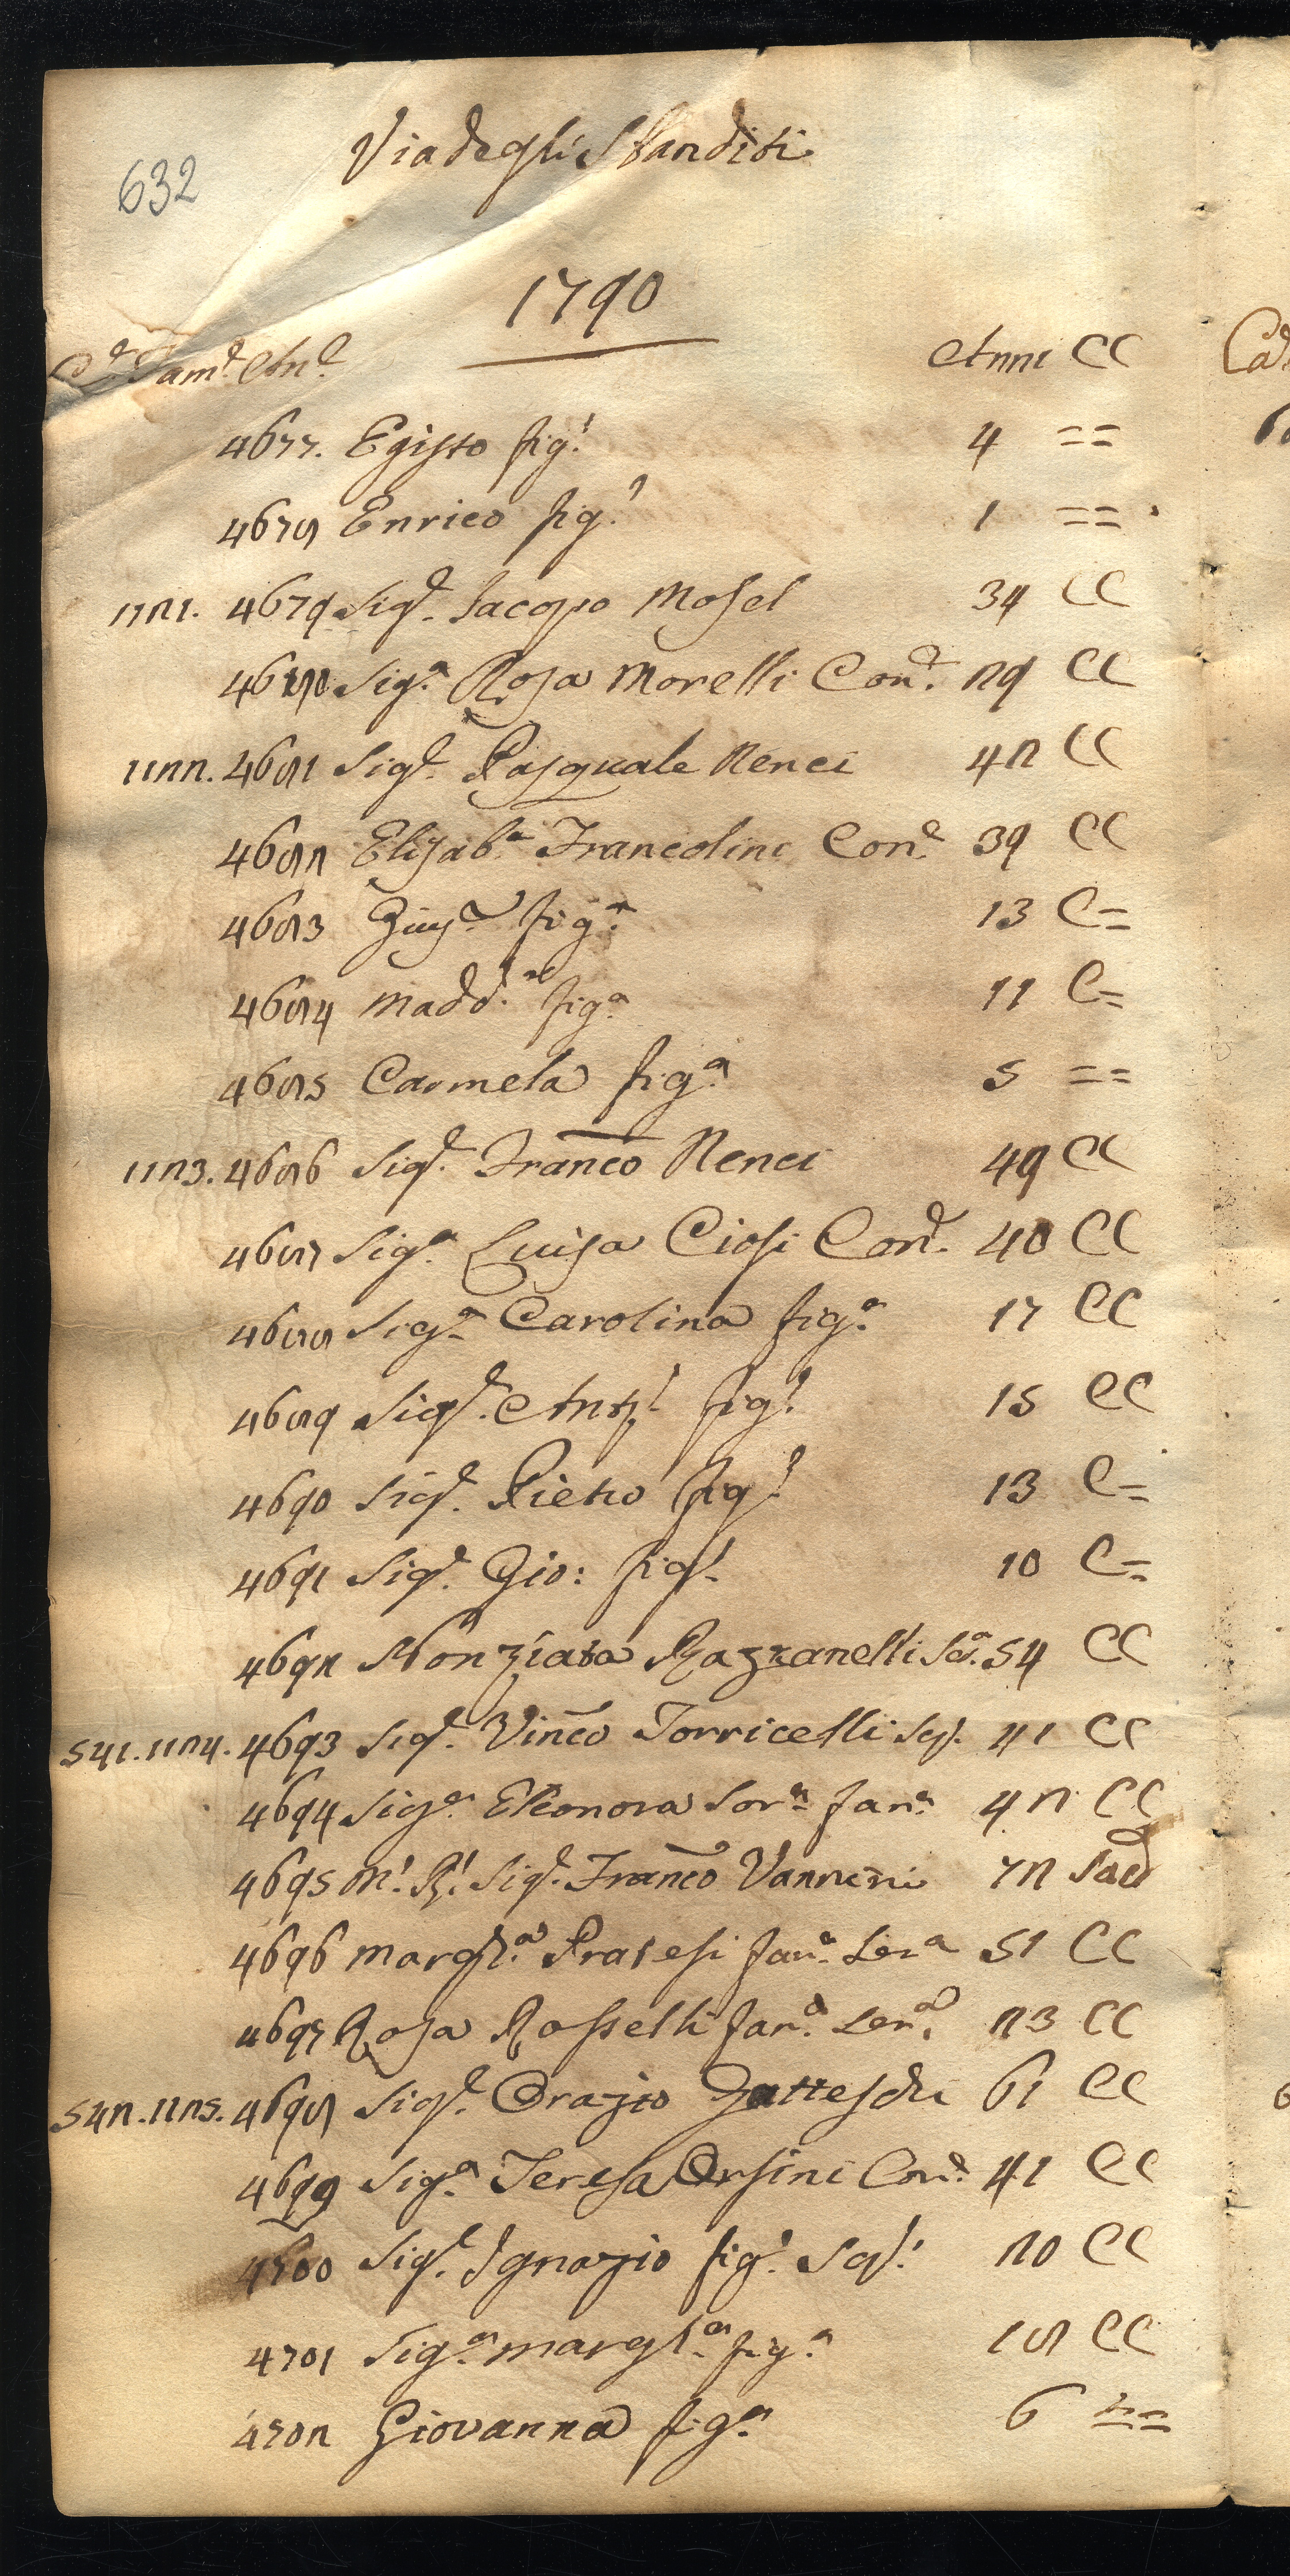 632
Via degli Sbanditi
1790
C.e Fam.e An.e Anni CC
4677. Egisto fig.o 4 ==
4678 Enrico fig.o 1 ==
1121. 4679 Sig.e Jacopo Mosel 34 CC
4680 Sig.a Rosa Morelli Con.e 29 CC
1122. 4681 Sig.e Pasquale Nenci 42 CC
4682 Elisab.a Francolini Con.e 39 CC
4683 Giusa fig.a 13 C=
4684 Madd.a fig.a 11 C=
4685 Carmela fig.a 5 ==
1123. 4686 Sig.e Franco Nenci 49 CC
4687 Sig.a Luisa Ciosi Con.e 40 CC
4688 Sig.a Carolina fig.a 17 CC
4689 Sig.e Ant.o fig.o 15 CC
4690 Sig.e Pietro fig.o 13 C=
4691 Sig.e Gio: fig.o 10 C=
4692 Nonziata Razzanelli Sa. 54 CC
541. 1124. 4693 Sig.e Vinco Torricelli Sc. 41 CC
4694 Sig.a Eleonora Sor.a Fan.a 42 CC
4695 M.o R.o Sig.e Franco Vannini 72 Sace
4696 Marg.ta Pratesi Fan.a Ser.a 51 CC
4697 Rosa Rosselli Fan.a Ser.a 23 CC
542. 1125. 4698 Sig.e Orazio Gatteschi 61 CC
4699 Sig.a Teresa Orsini Con.e 41 CC
4700 Sig.e Ignazio fig.o Sc.o 20 CC
4701 Sig.a Marg.ta fig.a 18 CC
4702 Giovanna fig.a 6 ==